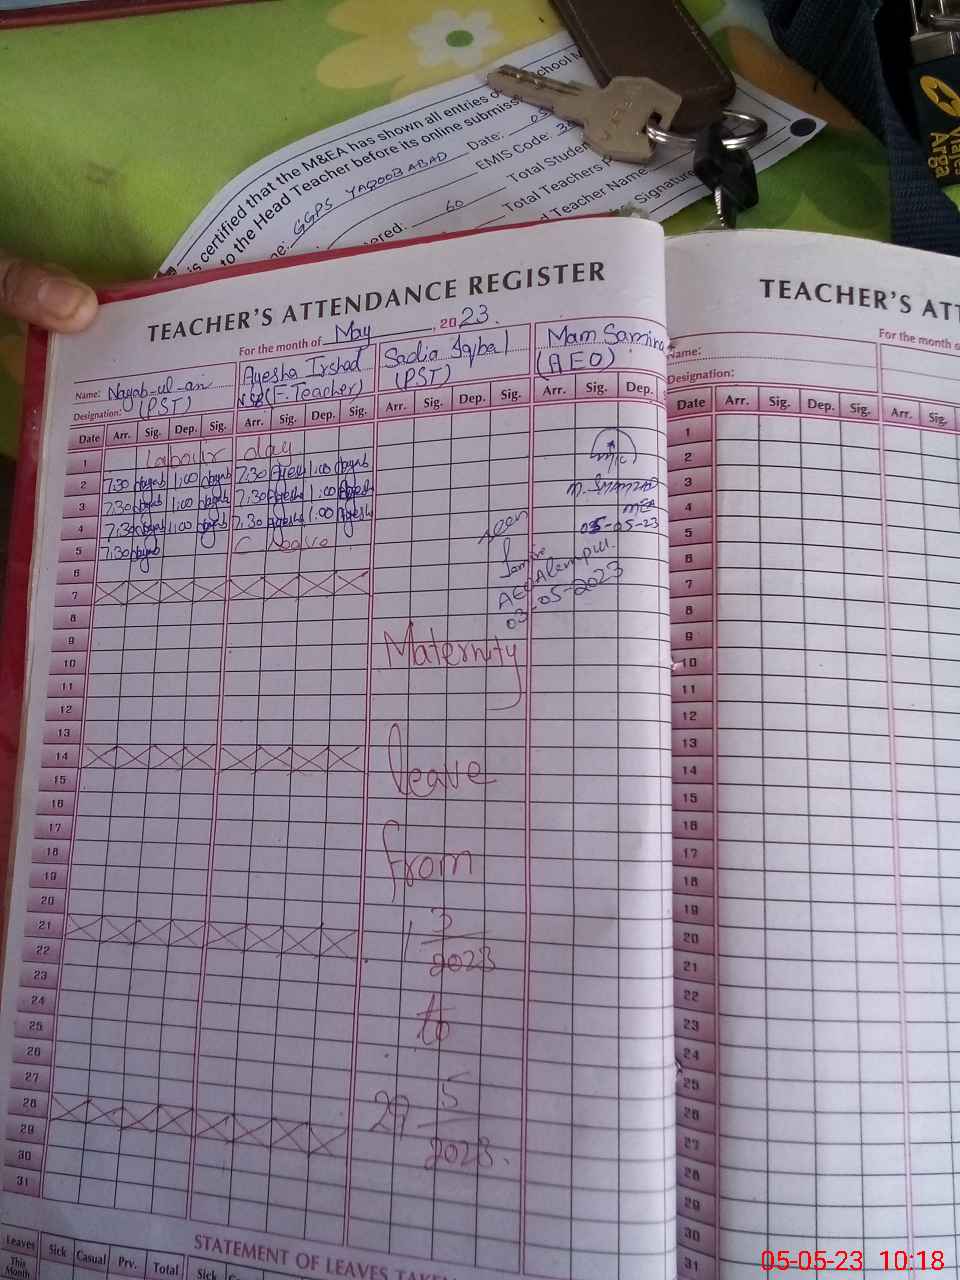 is certified that the M&EA has shown all entries of School M
to the Head Teacher before its online submiss
GGPS YAQOOB ABAD Date: 05
EMIS Code: 3
ered: 60 Total Studen
Total Teachers p
d Teacher Name
Signature
TEACHER'S ATTENDANCE REGISTER
For the month of May, 2023.
Name: Nayab-ul-ain
Designation: (PST)
Ayesha Irshad
(F. Teacher)
Sadia Iqbal
(PST)
Mam Samina
(AEO)
Date Arr. Sig. Dep. Sig. Arr. Sig. Dep. Sig. Arr. Sig. Dep. Sig. Arr. Sig. Dep.
1 labour day
2 7:30 Nayab 1:00 Nayab 7:30 Ayesha 1:00
3 7:30 Nayab 1:00 Nayab 7:30 Ayesha 1:00 Ayesha
4 7:30 Nayab 1:00 Nayab 7:30 Ayesha 1:00 Ayesha
5 7:30 Nayab C leave
6
7
8
9
10
11
12
13
14
15
16
17
18
19
20
21
22
23
24
25
26
27
28
29
30
31
M. SHAHZAD
MEA
05-05-23
Seen
AEO Alampur.
03-05-2023
Maternity
leave
from
1 3
2023
to
29 5
2023.
STATEMENT OF LEAVES TAKE
Leaves Sick Casual Prv. Total Sick
This
Month
TEACHER'S ATT
For the month o
Name:
Designation:
Date Arr. Sig. Dep. Sig. Arr. Sig.
1
2
3
4
5
6
7
8
9
10
11
12
13
14
15
16
17
18
19
20
21
22
23
24
25
26
27
28
29
30
31
05-05-23 10:18